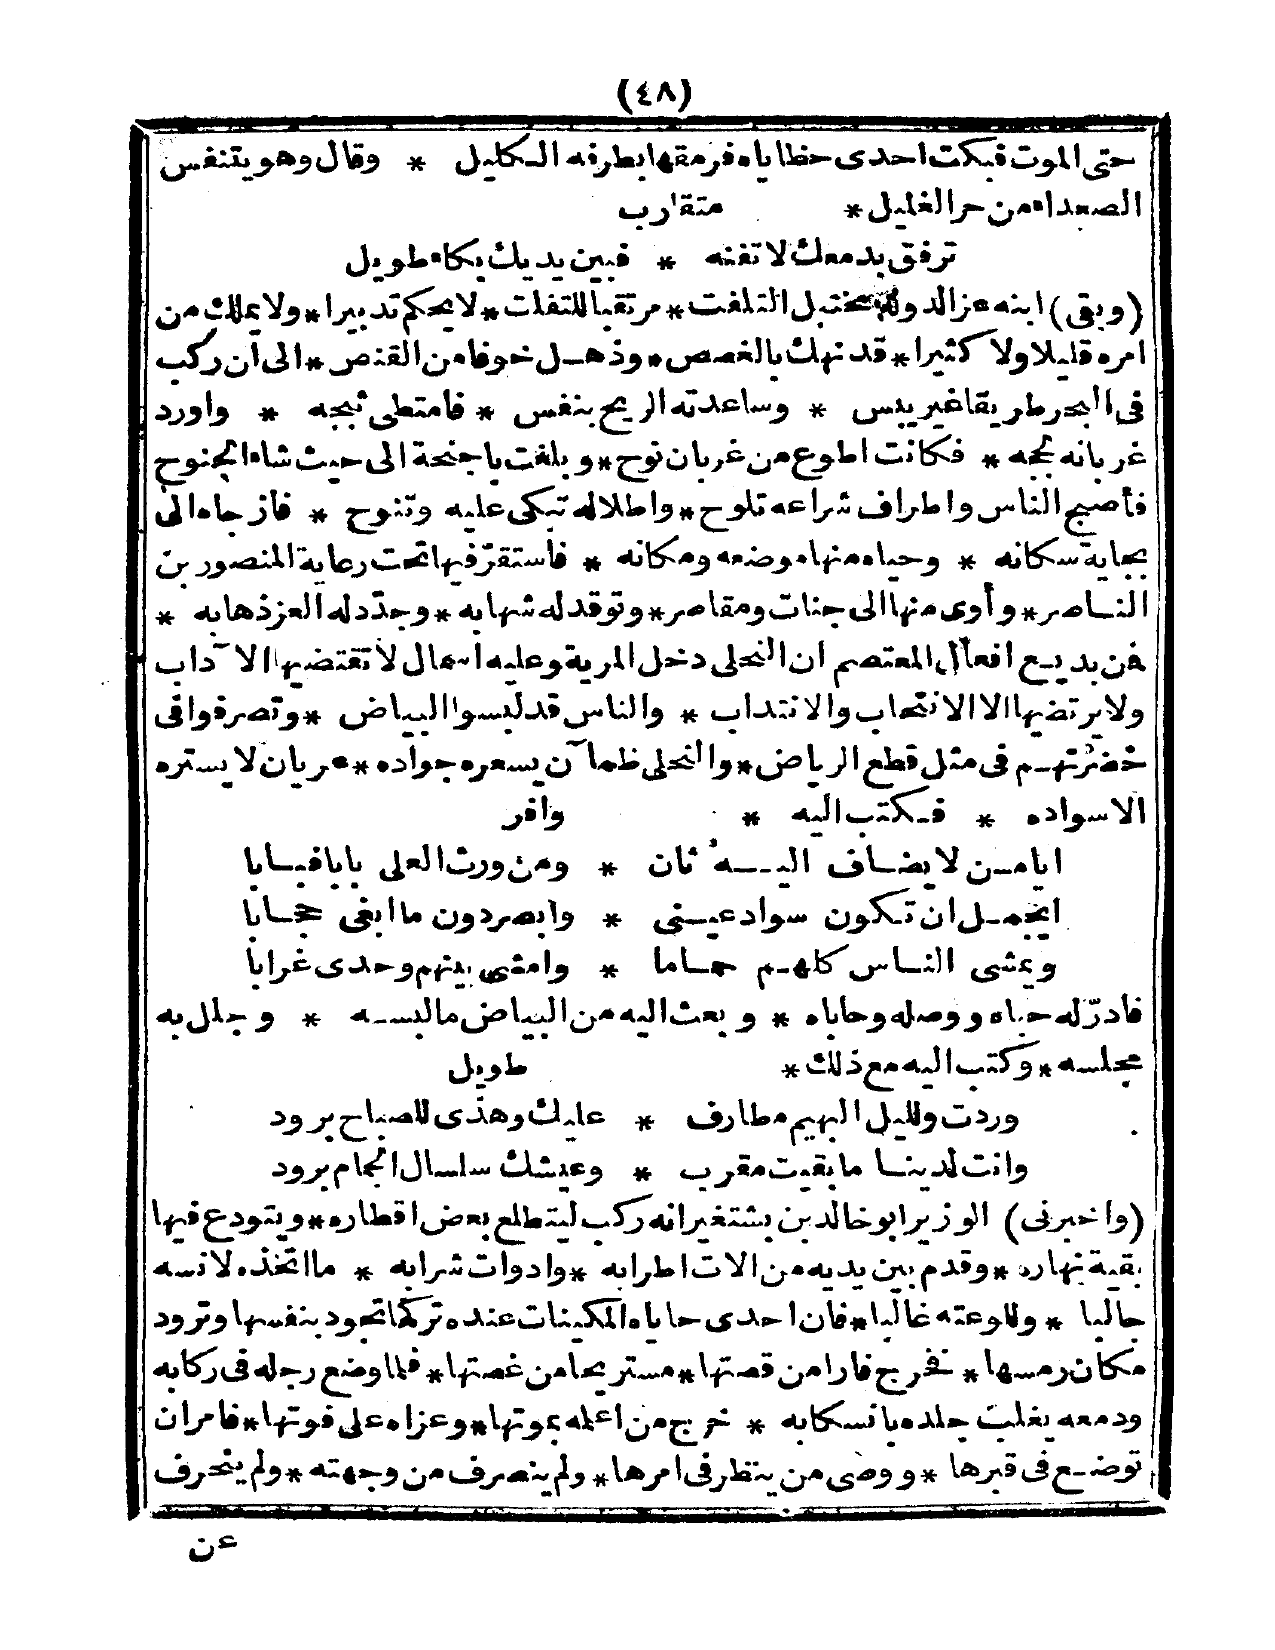 (٤٨)
حتى الموت فبكت احدى حظاياه فرمقها بطرفه الكليل * وقال وهو يتنفس
الصعداء من حر الغليل * متقارب
ترفق بدمعك لا تفنه * فبين يديك بكاء طويل
(وبقى) ابنه عز الدولة مختبل التلفت * مرتقبا للتفلت * لا يحكم تدبيرا * ولا يملك من
امره قليلا ولا كثيرا * قد نهك بالغصص * وذهل خوفا من القنص * الى أن ركب
فى البحر طريقا غير يبس * وساعدته الريح بنفس * فامتطى ثبجه * واورد
غربانه لججه * فكانت اطوع من غربان نوح * وبلغت باجنحة الى حيث شاء الجنوح
فأصبح الناس واطراف شراعه تلوح * واطلاله تبكى عليه وتنوح * فازجاه الى
بجاية سكانه * وحياه منها موضعه ومكانه * فاستقرّ فيها تحت رعاية المنصور بن
الناصر * وأوى منها الى جنات ومقاصر * وتوقد له شهابه * وجدّد له العز ذهابه *
فمن بديع افعال المعتصم ان النحلى دخل المرية وعليه اسمال لا تقتضيها الآداب
ولا يرتضيها الا الانتحاب والانتداب * والناس قد لبسوا البياض * وتصرفوا فى
خضرتهم فى مثل قطع الرياض * والنحلى ظمآن يسعره جواده * عريان لا يستره
الا سواده * فكتب اليه * وافر
ايا من لا يضاف اليه ثان * ومن ورث العلى بابا فبابا
ايجمل ان تكون سواد عينى * وابصر دون ما ابغى حجابا
ويمشى الناس كلهم حماما * وامشى بينهم وحدى غرابا
فادرّ له حباه ووصله وحاباه * وبعث اليه من البياض ما لبسه * وجلل به
مجلسه * وكتب اليه مع ذلك * طويل
وردت ولليل البهيم مطارف * عليك وهذى للصباح برود
وانت لدينا ما بقيت مقرب * وعيشك سلسال الجمام برود
(واخبرنى) الوزير ابو خالد بن بشتغير انه ركب ليتطلع بعض اقطاره * ويتودع فيها
بقية نهاره * وقدم بين يديه من الات اطرابه * وادوات شرابه * ما اتخذه لانسه
جالبا * وللوعته غالبا * فان احدى حاياه المكينات عنده تركها تجود بنفسها وترود
مكان رمسها * نخرج فارا من قصتها * مستريحا من غصتها * فلما وضع رجله فى ركابه
ودمعه يغلب جلده بانسكابه * خرج من اعلمه بموتها * وعزاه على فوتها * فامر ان
توضع فى قبرها * ووصى من ينظر فى امرها * ولم ينصرف من وجهته * ولم ينحرف
عن